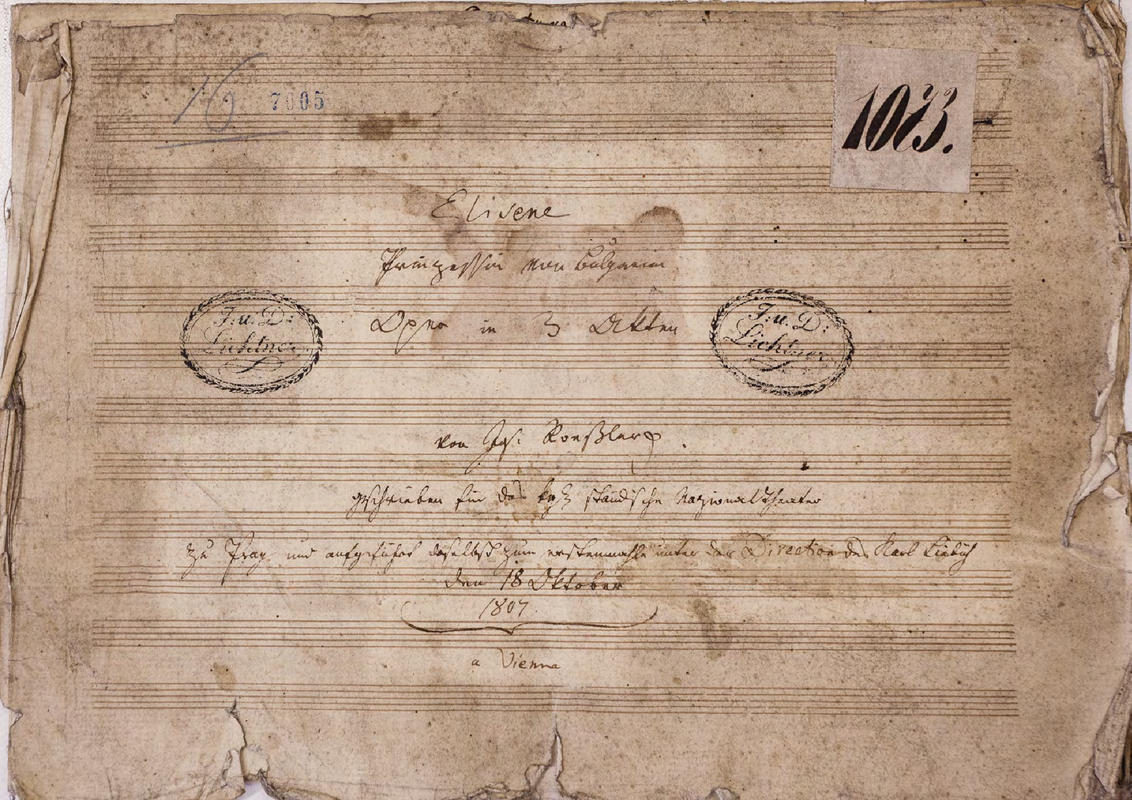 7005
1073.
Elisene
Prinzessin von Bulgarien
Oper in 3 Akten
J: u. D:
Lichtner
J: u. D:
Lichtner
von Jos: Roeßler
geschrieben für das ständische Nazionaltheater
zu Prag und aufgeführt daselbst zum erstenmahle unter der Direction des Karl Liebich
den 18 Oktober
1807.
a Vienna